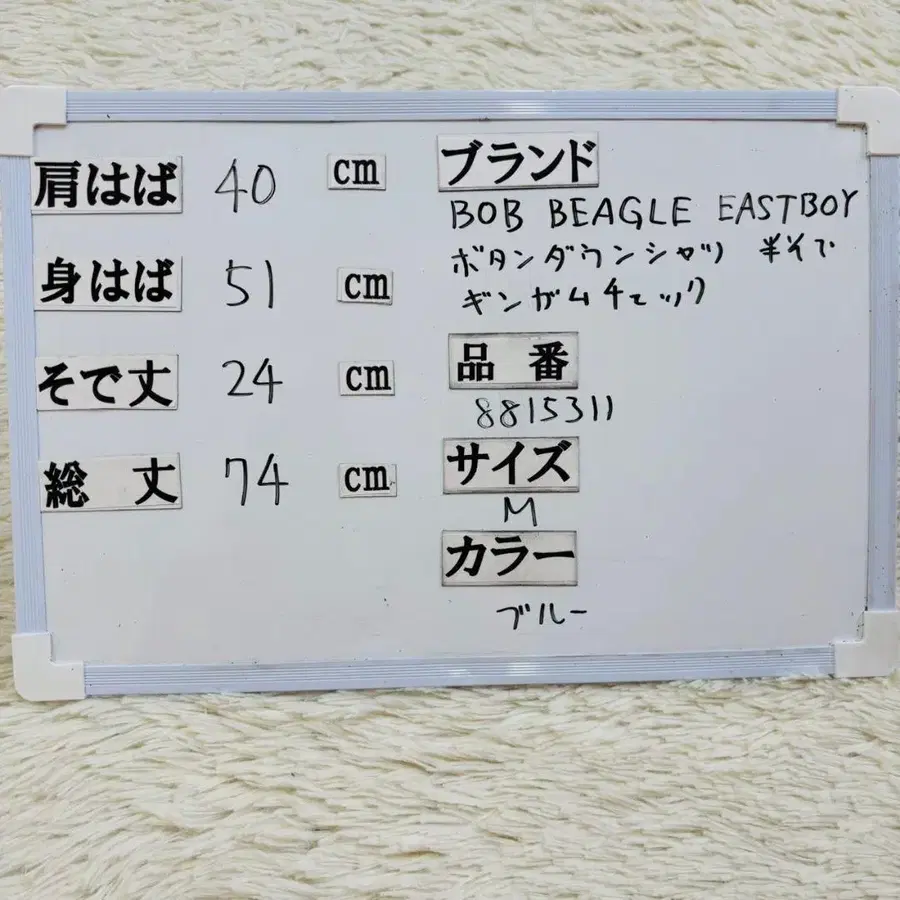 肩はば 40 cm
身はば 51 cm
そで丈 24 cm
総 丈 74 cm
ブランド
BOB BEAGLE EASTBOY
ボタンダウンシャツ 半そで
ギンガムチェック
品 番
8815311
サイズ
M
カラー
ブルー